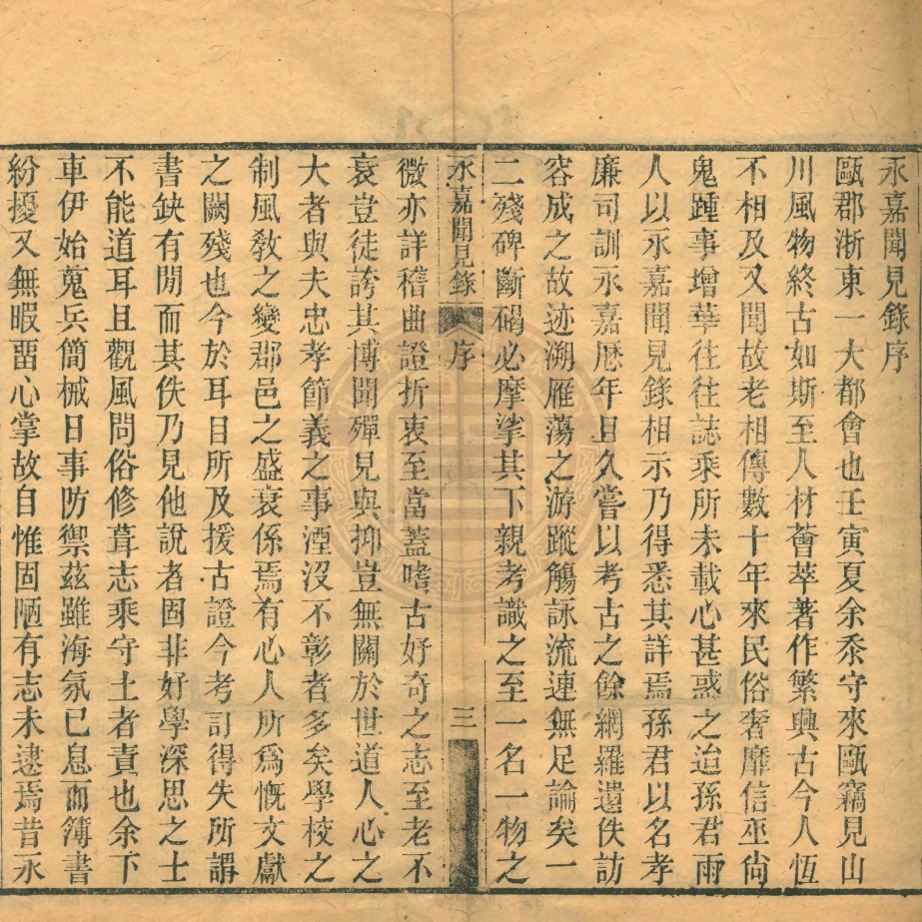 永嘉聞見錄序
甌郡浙東一大都會也壬寅夏余忝守來甌竊見山
川風物終古如斯至人材薈萃著作繁興古今人恆
不相及又聞故老相傳數十年來民俗奢靡信巫尙
鬼踵事增華往往誌乘所未載心甚惑之迨孫君雨
人以永嘉聞見錄相示乃得悉其詳焉孫君以名孝
廉司訓永嘉歷年且久嘗以考古之餘網羅遺佚訪
容成之故迹溯雁蕩之游蹤觴詠流連無足論矣一
二殘碑斷碣必摩挲其下親考識之至一名一物之
永嘉聞見錄 序 三
微亦詳稽曲證折衷至當蓋嗜古好奇之志至老不
衰豈徒誇其博聞殫見與抑豈無關於世道人心之
大者與夫忠孝節義之事湮沒不彰者多矣學校之
制風敎之變郡邑之盛衰係焉有心人所爲慨文獻
之闕殘也今於耳目所及援古證今考訂得失所謂
書缺有閒而其佚乃見他說者固非好學深思之士
不能道耳且觀風問俗修葺志乘守土者責也余下
車伊始蒐兵簡械日事防禦茲雖海氛已息而簿書
紛擾又無暇畱心掌故自惟固陋有志未逮焉昔永